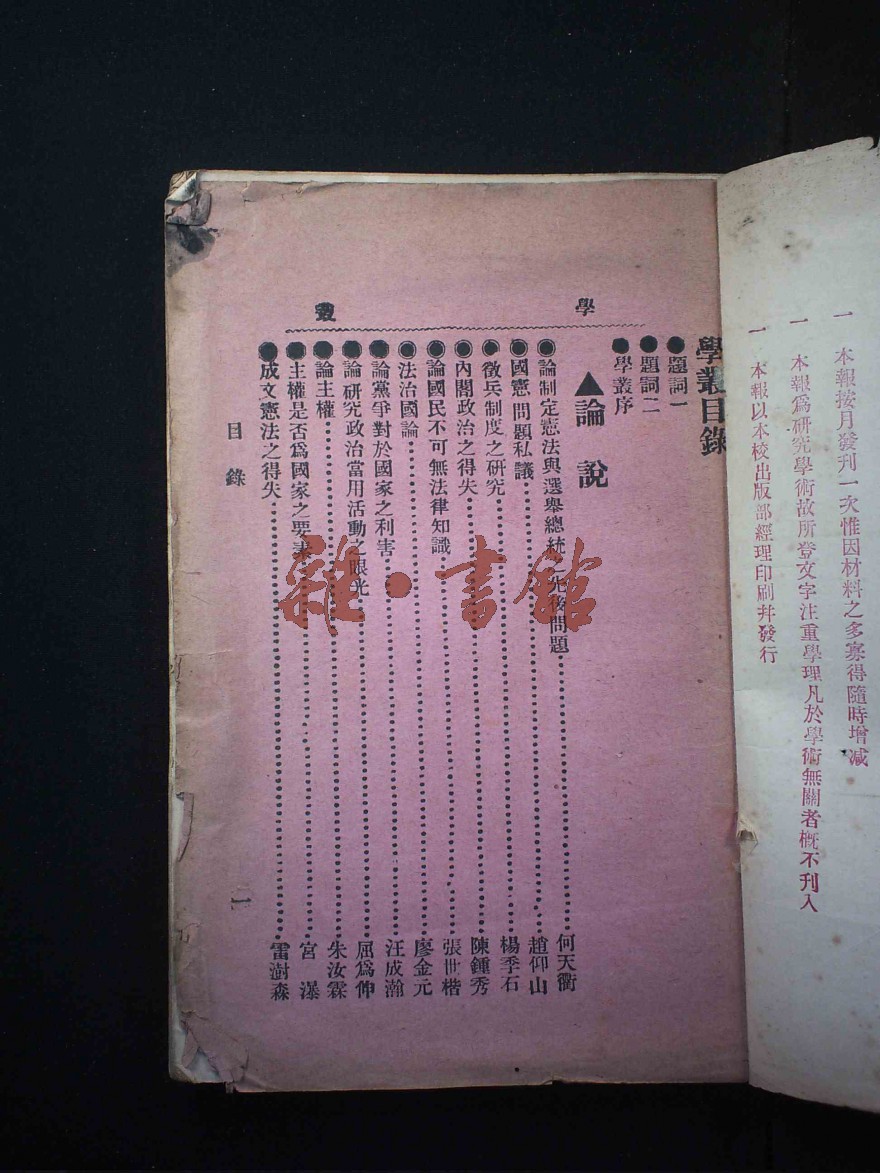 一 本報按月發刊一次惟因材料之多寡得隨時增減
一 本報爲研究學術故所登文字注重學理凡於學術無關者槪不刊入
一 本報以本校出版部經理印刷幷發行
學叢目錄
●題詞一
●題詞二
●學叢序
學叢
▲論說
●論制定憲法與選舉總統之先後問題 何天衢
●國憲問題私議 趙仰山
●徵兵制度之硏究 楊季石
●內閣政治之得失 陳鍾秀
●論國民不可無法律知識 張世楷
●法治國論 廖金元
●論黨爭對於國家之利害 汪成瀚
●論研究政治當用活動之眼光 屈爲伸
●論主權 朱汝霖
●主權是否爲國家之要素 宮瀑
●成文憲法之得失 雷澍森
目錄
一
雜·書館